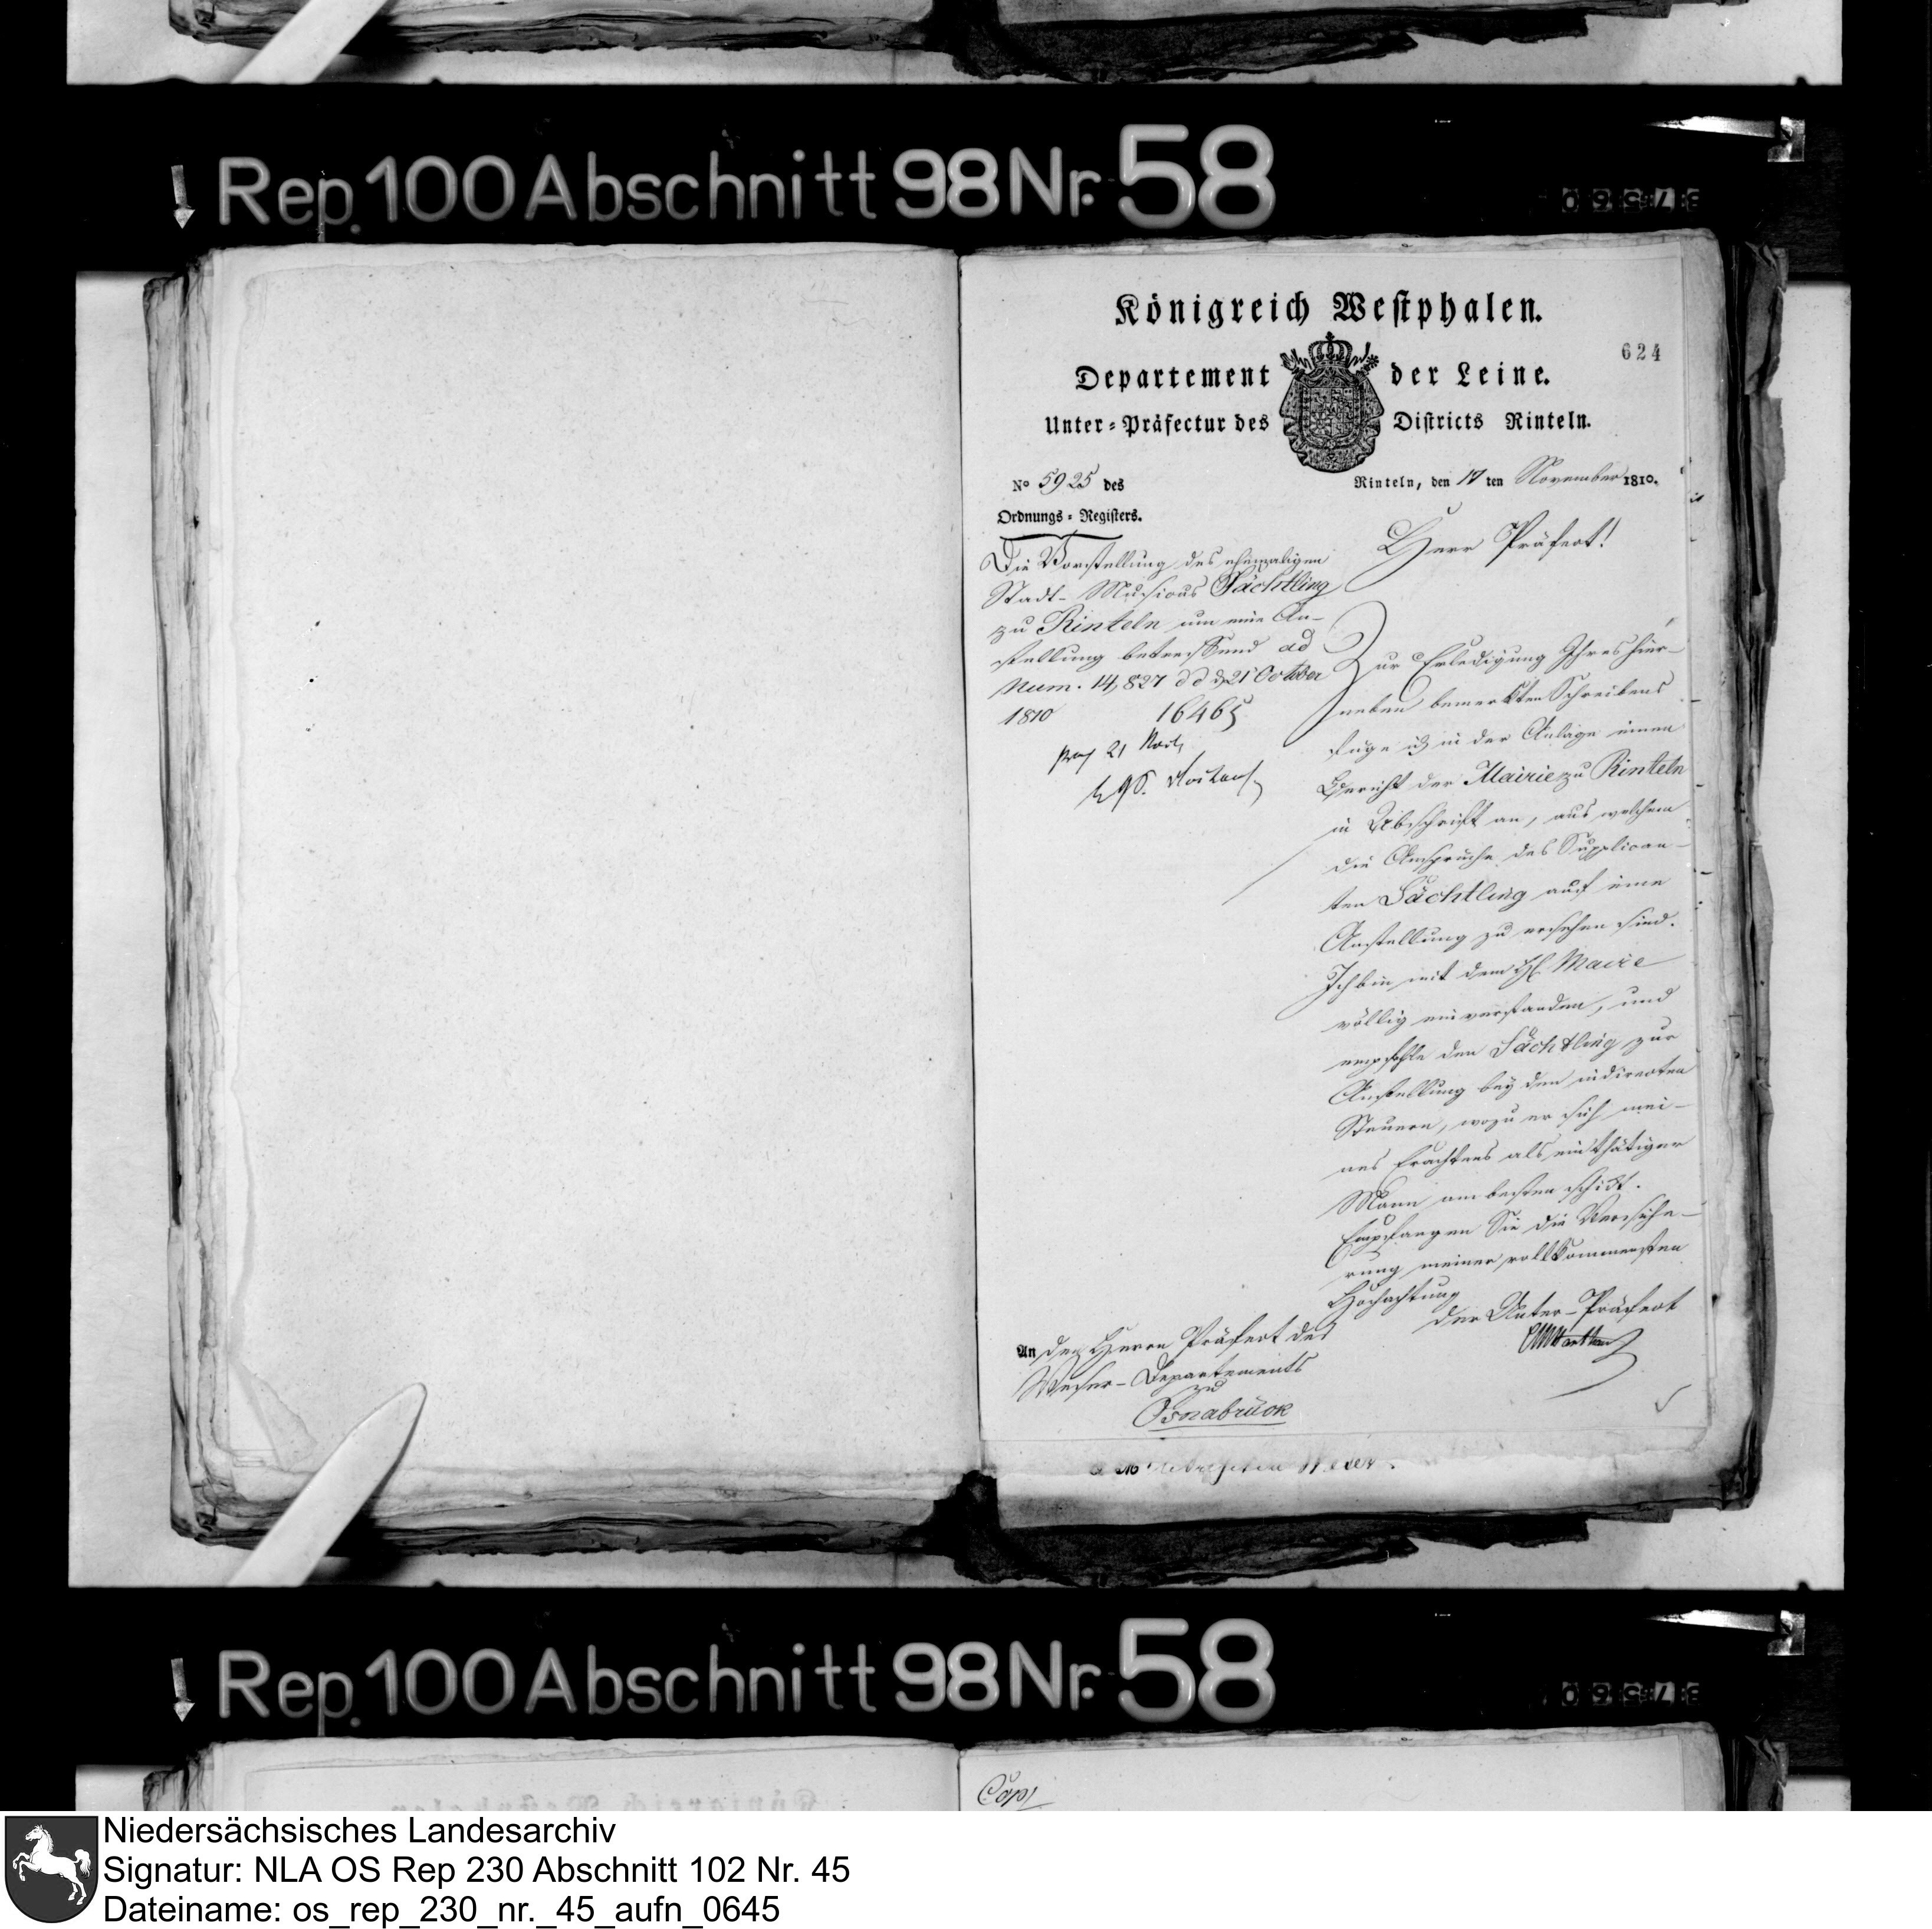 Rep. 100 Abschnitt 98 Nr. 58
Königreich Westphalen.
624
Departement der Leine.
Unter-Präfectur des Districts Rinteln.
No 5925 des
Ordnungs-Registers.
Rinteln, den 17 ten November 1810.
Die Vorstellung des ehemaligen
Stadt-Musicus Sächtling
zu Rinteln um eine An-
stellung betreffend ad
Num. 14,827 dd d. 21 October
1810 16465
21
Herr Präfect!
Zur Erledigung Ihres hier-
neben bemerkten Schreibens
füge ich in der Anlage einen
Bericht der Mairie zu Rinteln
in Abschrift an, aus welchem
die Ansprüche des Supplican-
ten Sächtling auf eine
Anstellung zu ersehen sind.
Ich bin mit dem H. Maire
völlig einverstanden, und
empfehle den Sächtling zur
Anstellung bey den indirecten
Steuern, wozu er sich mei-
nes Erachtens als ein thätiger
Mann am besten schickt.
Empfangen Sie die Versiche-
rung meiner vollkommensten
Hochachtung
der Unter-Präfect
An den Herrn Präfect des
Weser-Departements
zu
Osnabrück
Rep. 100 Abschnitt 98 Nr. 58
Niedersächsisches Landesarchiv
Signatur: NLA OS Rep 230 Abschnitt 102 Nr. 45
Dateiname: os_rep_230_nr._45_aufn_0645